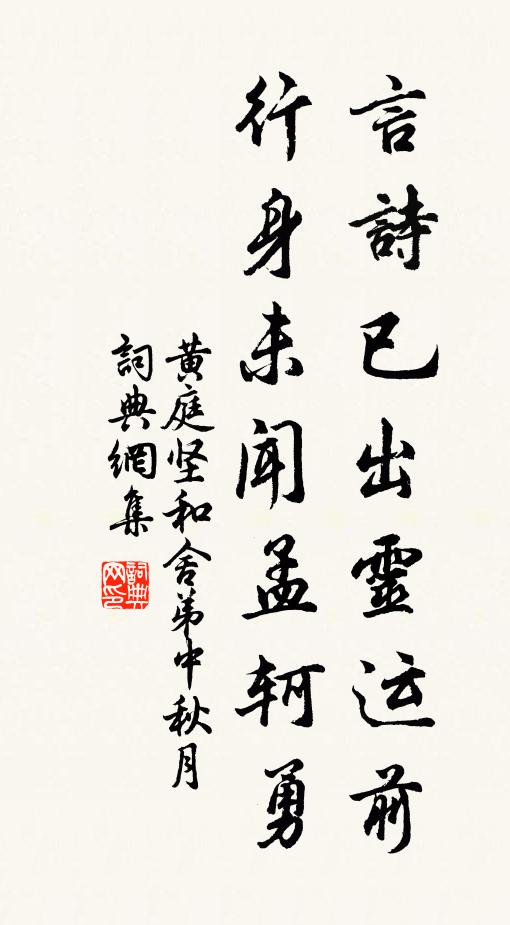 言詩已出靈运前
行身未聞孟轲勇
黄庭坚和舍弟中秋月
詞典網集
詞典网印